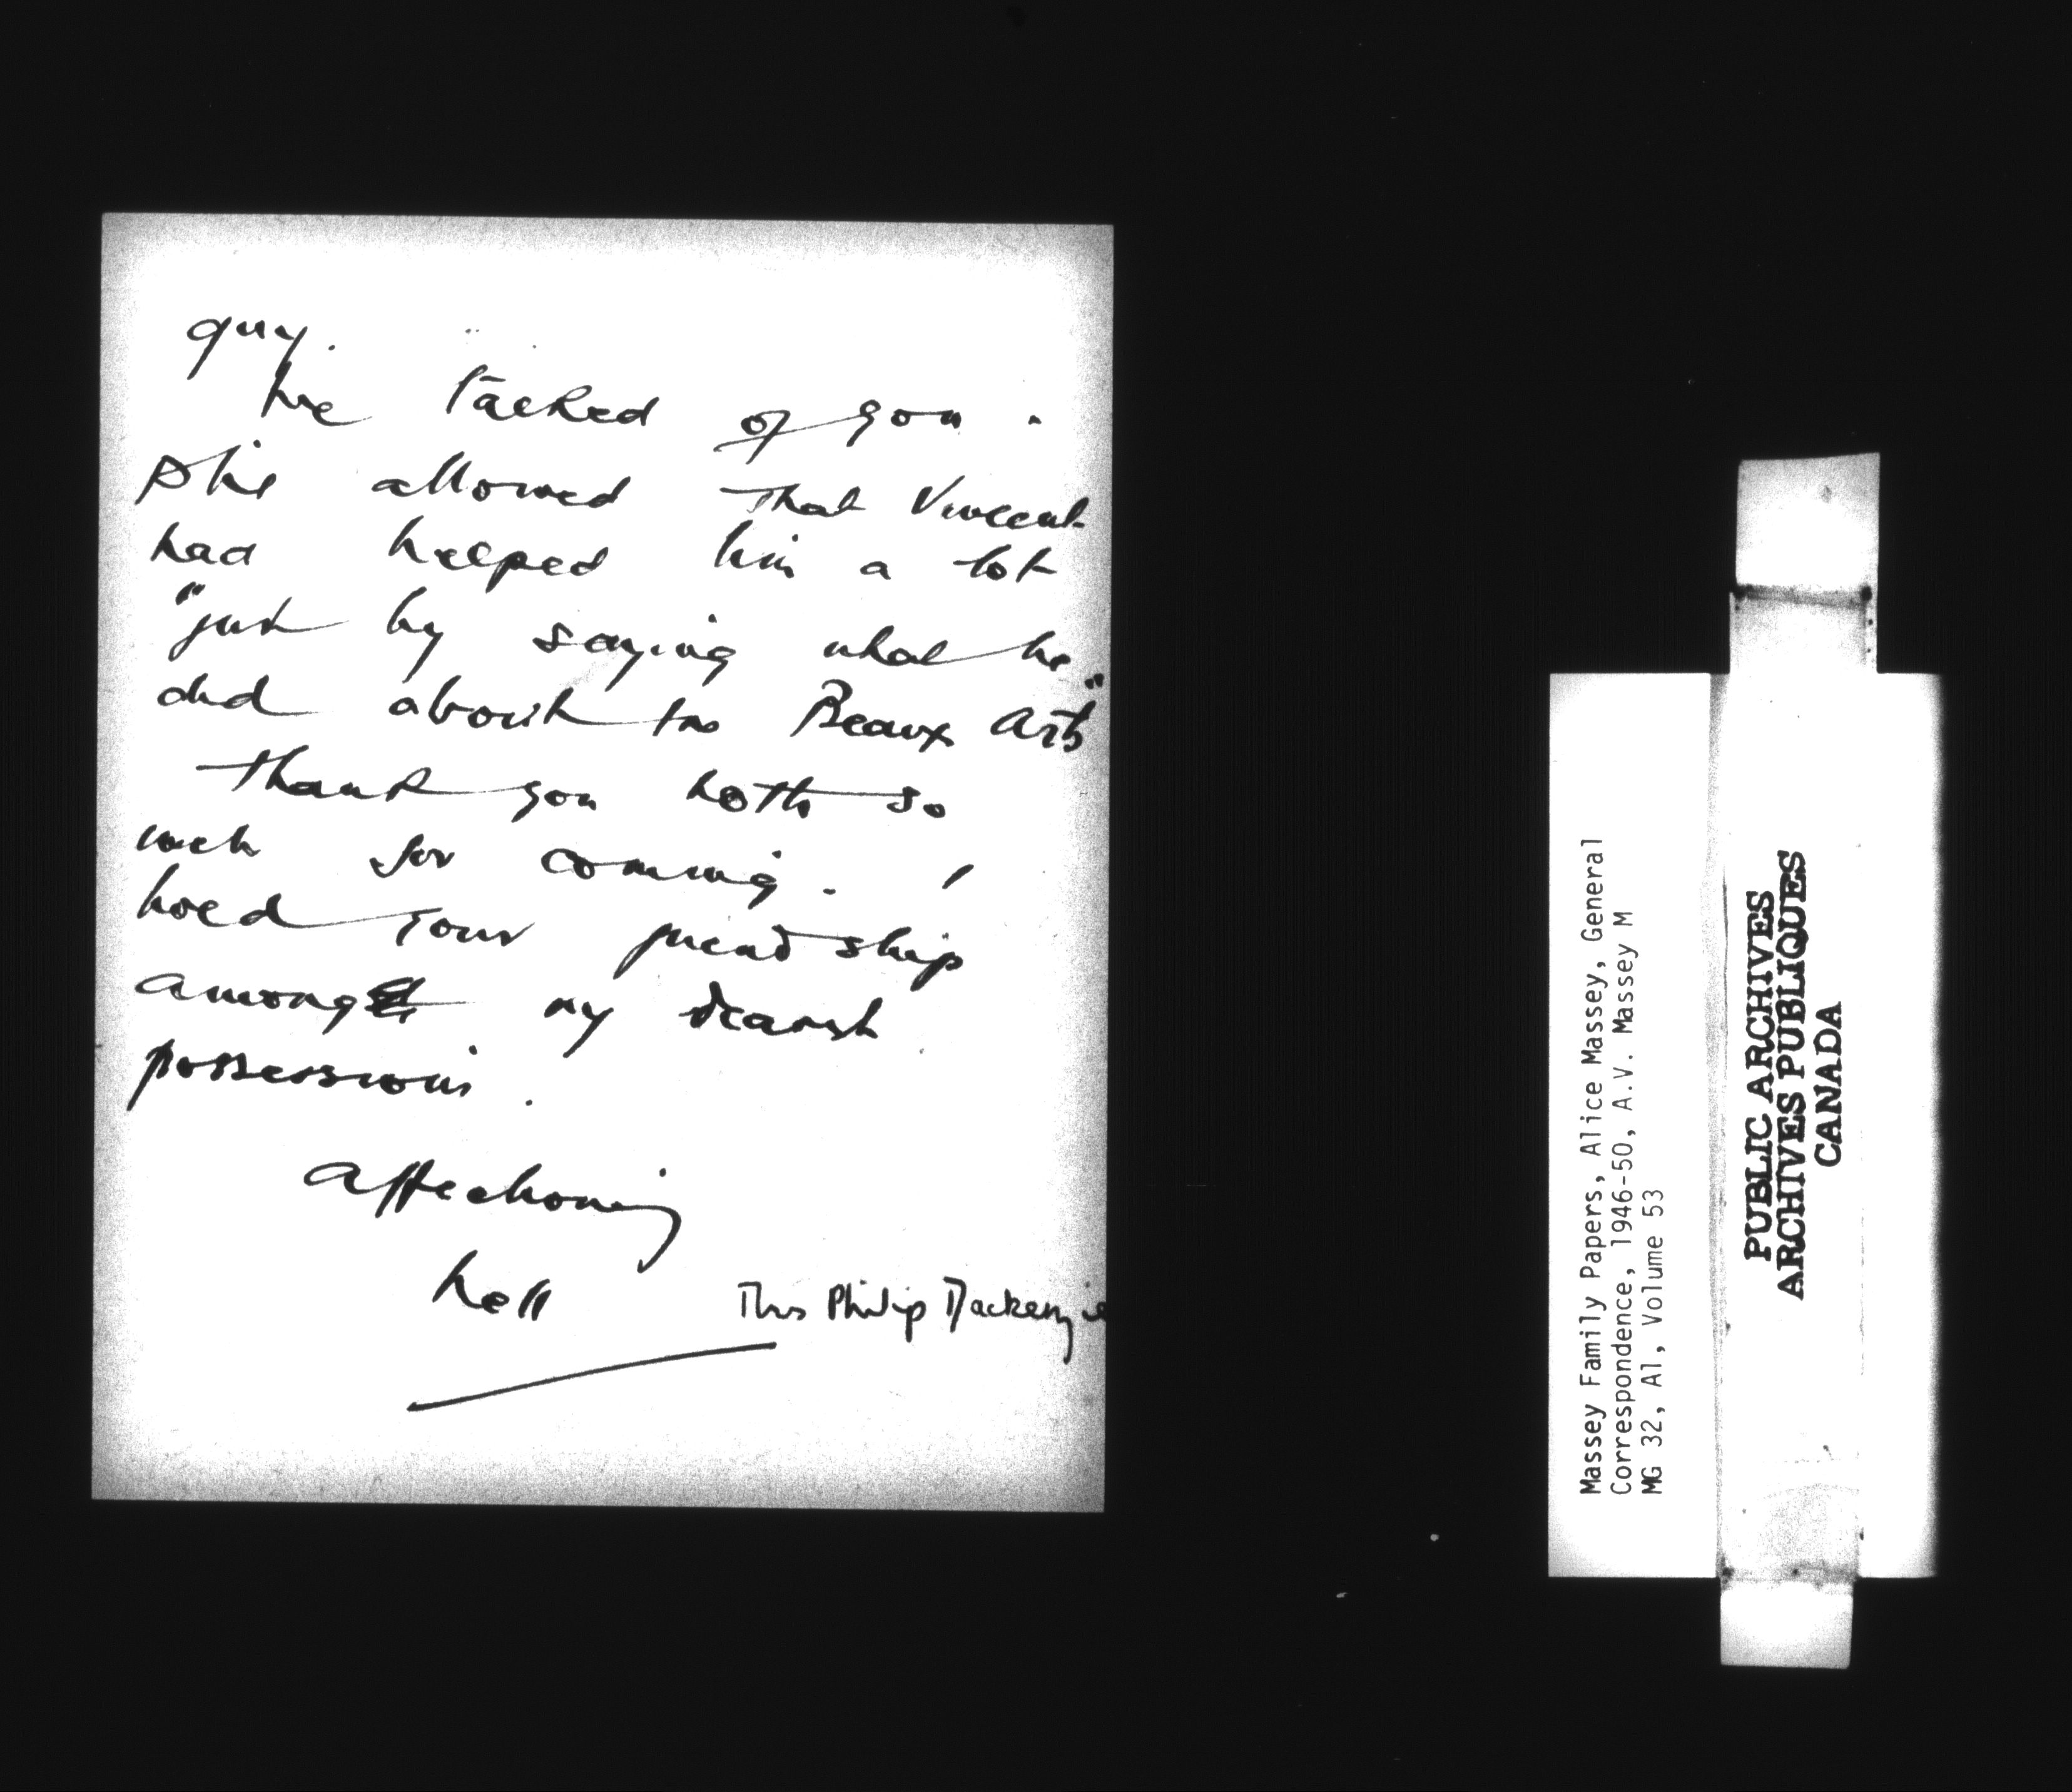 guy.
We talked of you.
Phil allowed that Vincent
had helped him a lot
"just by saying what he
did about the Beaux Arts"
Thank you both so
much for coming. I
hold your friendship
among my dearest
possessions.
Affectionately
Nell
Mrs Philip Mackenzie
Massey Family Papers, Alice Massey, General
Correspondence, 1946-50, A.V. Massey M
MG 32, A1, Volume 53
PUBLIC ARCHIVES
ARCHIVES PUBLIQUES
CANADA